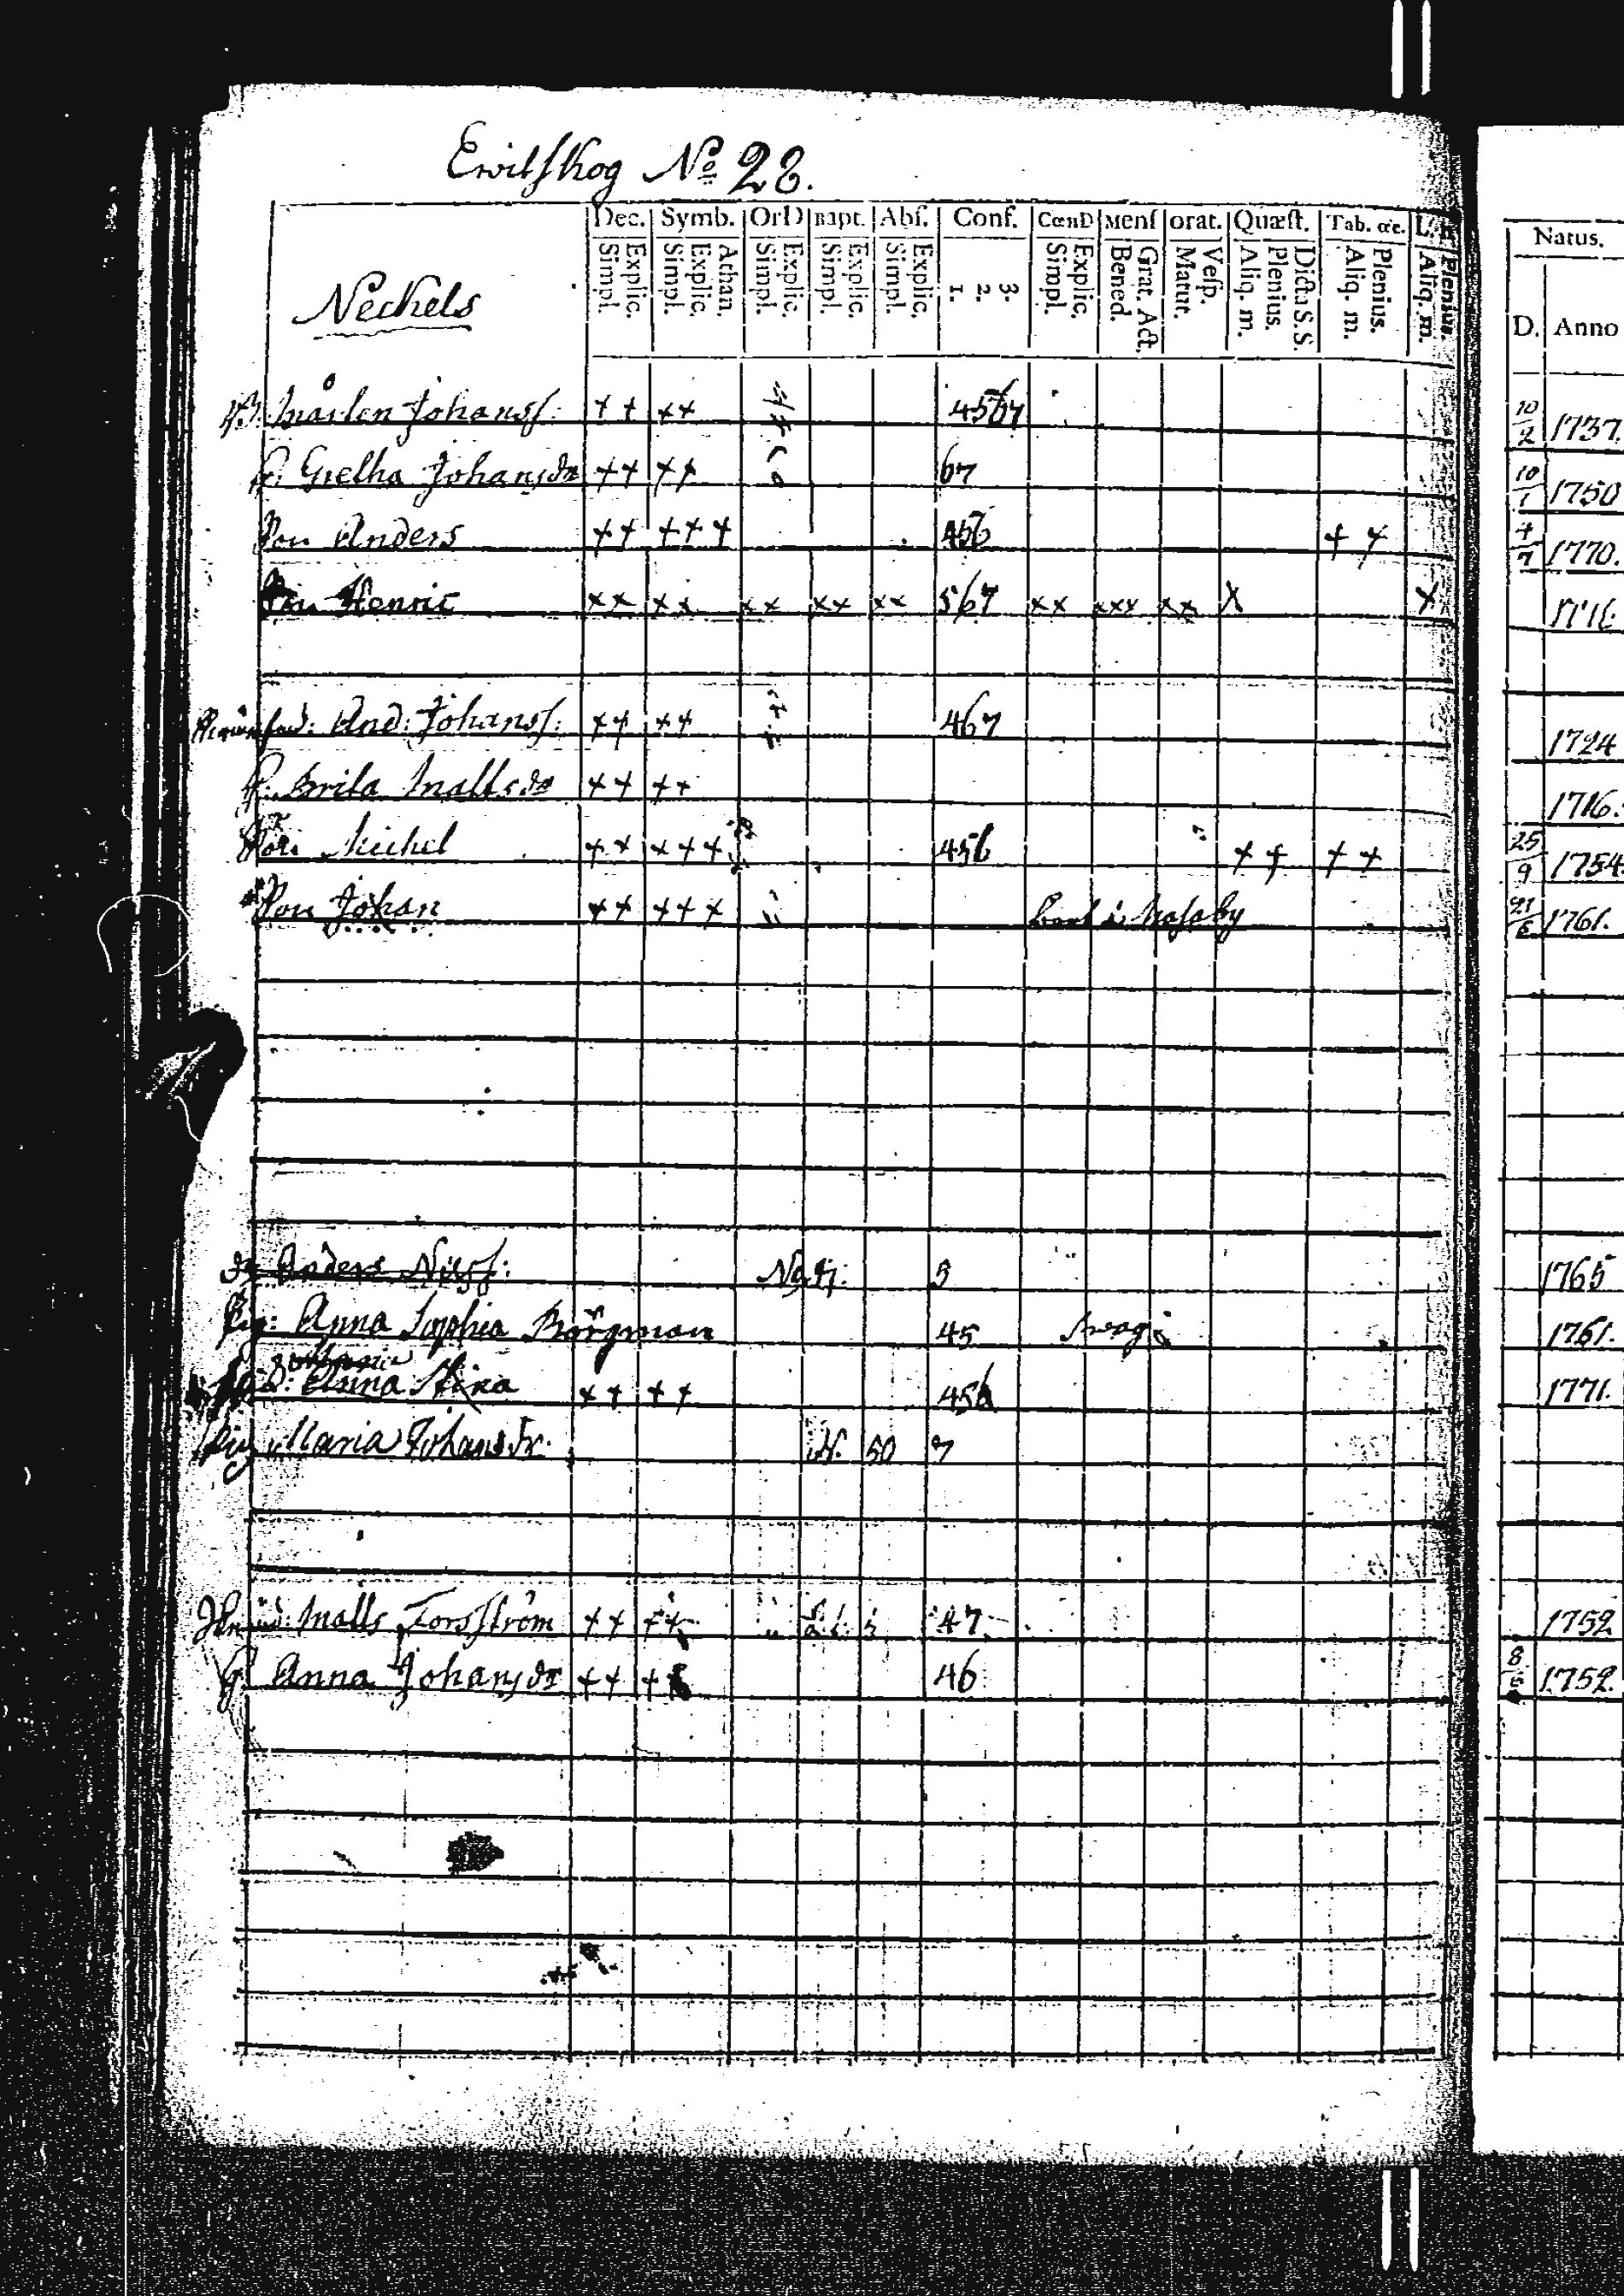 Ewitskog No 28.
Dec. Symb. OrD Bapt. Abs. Conf. CœnD Menſ orat. Quæst. Tab. œc. Natus.
Explic. Simpl. Athan. Explic. Simpl. Explic. Simpl. Explic. Simpl. Explic. Simpl. 3. 2. 1. Explic. Simpl. Grat. Act. Bened. Vesp. Matut. Dicta S. S. Plenius. Aliq. m. Plenius. Aliq. m. Plenius. Aliq. m. D. Anno
Neckels
Mårten Johansſ: ++ ++ 4567 10/2 1737.
Gretha Johansdr ++ ++ 67 10/1 1750
Son Anders ++ +++ 456 ++ 4/7 1770.
Son Henric xx xx xx xx xx 567 xx xxx xx x x
And: Johansſ: ++ ++ 467 1724
Brita Mattsdr ++ ++ 1716.
Michel ++ +++ 456 ++ ++ 25/9 1754.
Son Johan ++ +++ 21/6 1761.
Anders Nilsſ: 5 1765
Pig: Anna Sophia Börgman 45 1761.
Anna Stina ++ ++ 456 1771.
Pig Maria Johansdr. N. 50 7
Matts Forsström ++ ++ 47 1752
Anna Johansdr ++ + 46 8/5 1752.